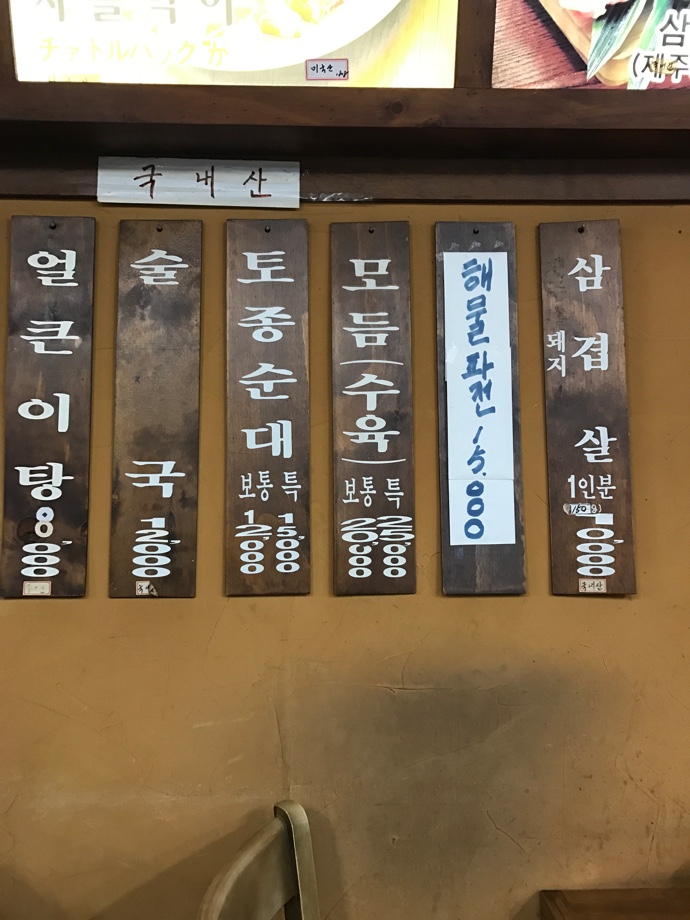 チャドルバックが
미국산
삼
(제주
국내산
얼큰이탕
8,000
술국
12,000
토종순대
보통 특
12,000 15,000
모듬(수육)
보통 특
20,000 25,000
해물파전 15.000
돼지
삼겹살
1인분
(150g)
국내산